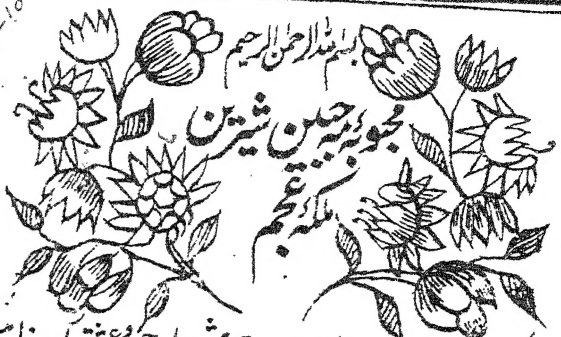 بسم الله الرحمن الرحيم
محبوبۂ مہ جبین شیرین
ملکۂ عجم